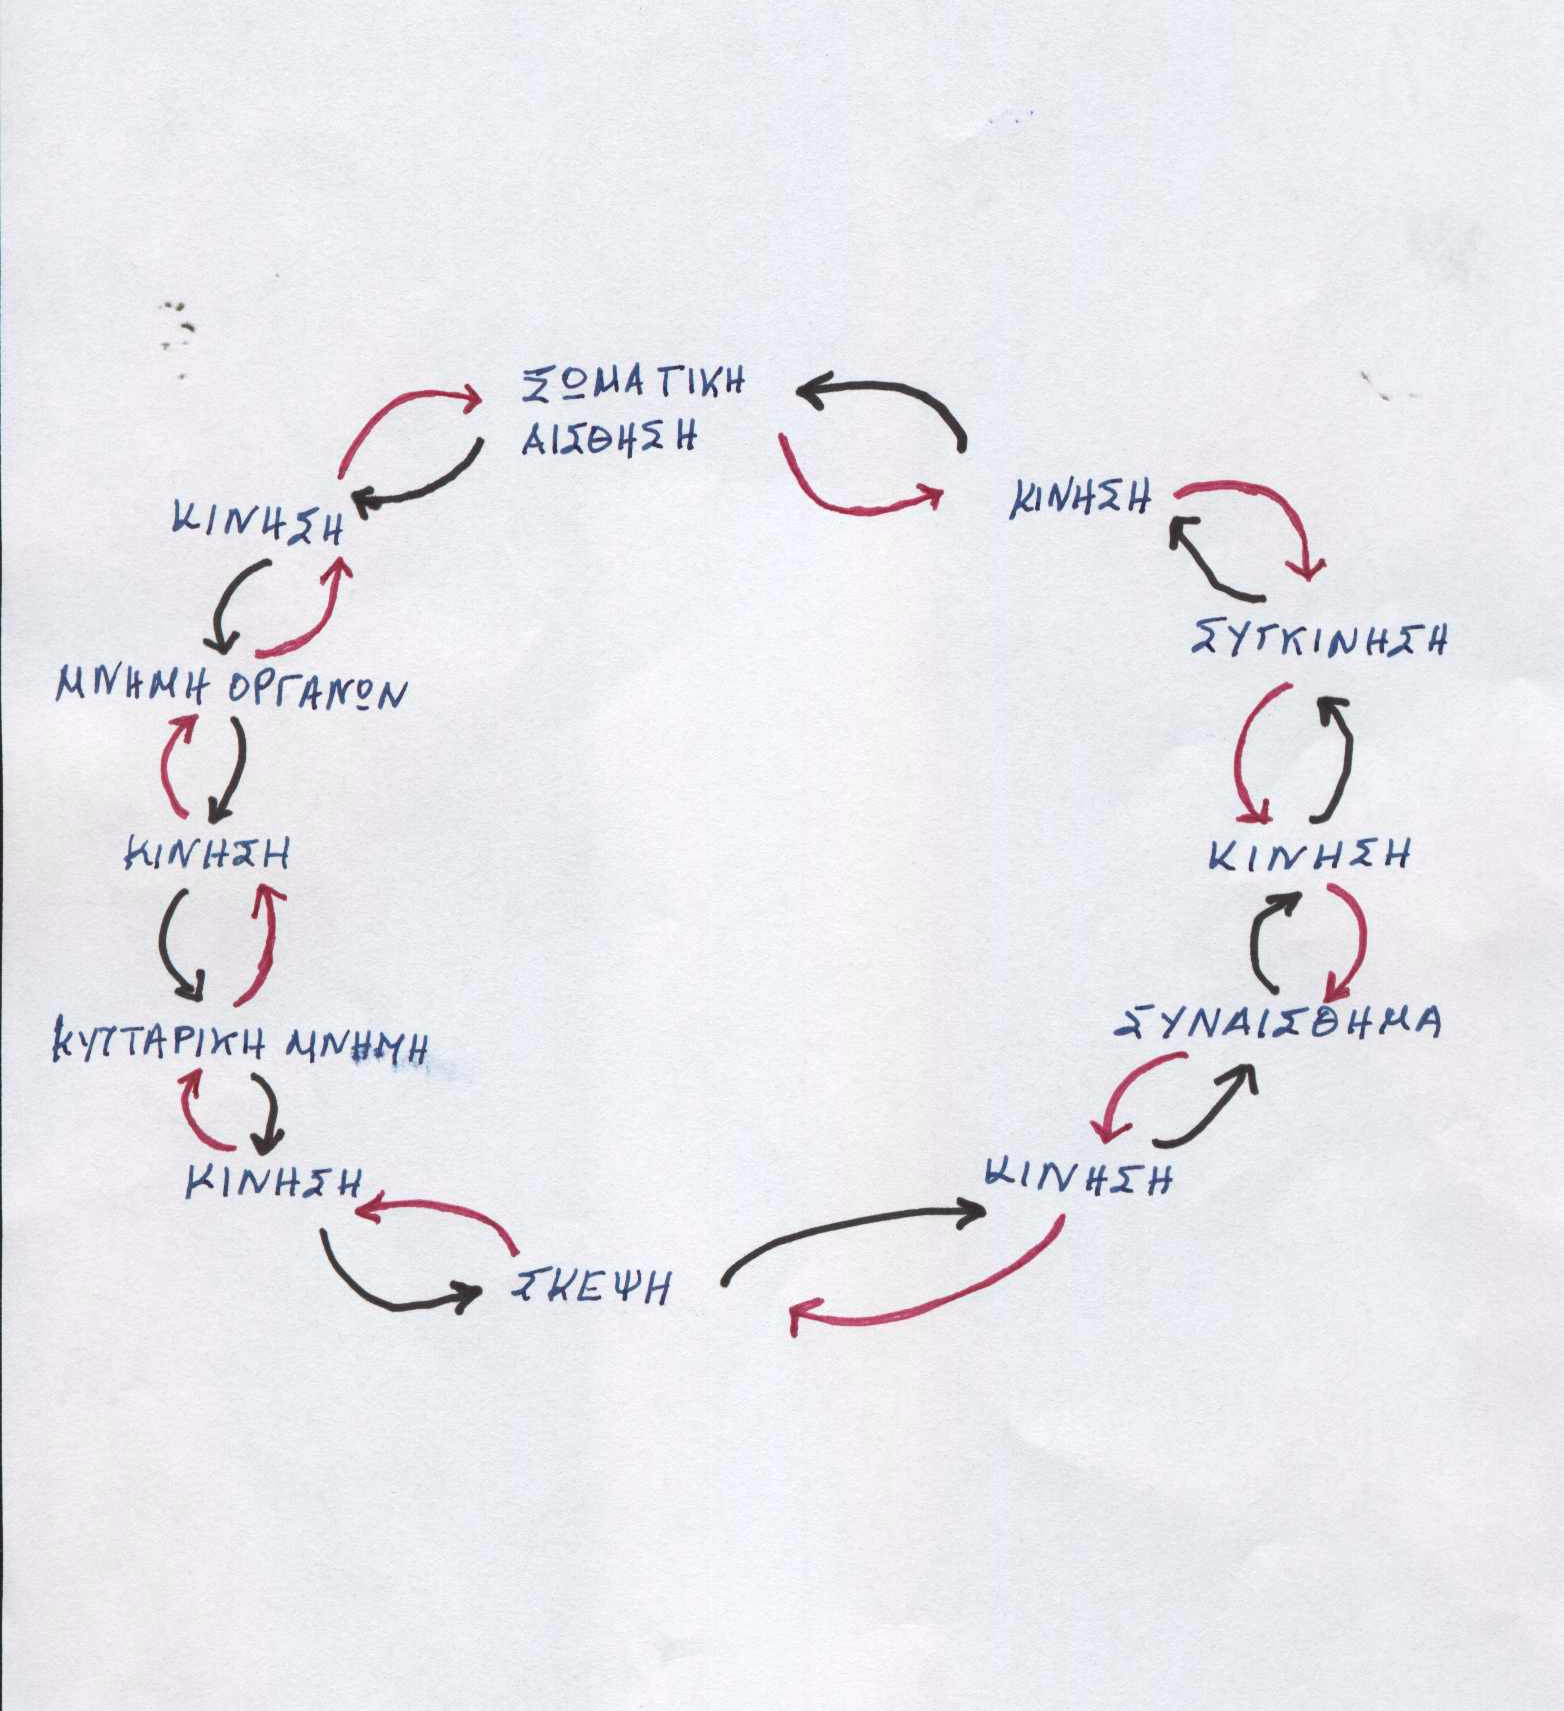 ΣΩΜΑΤΙΚΗ
ΑΙΣΘΗΣΗ
ΚΙΝΗΣΗ
ΚΙΝΗΣΗ
ΣΥΓΚΙΝΗΣΗ
ΜΝΗΜΗ ΟΡΓΑΝΩΝ
ΚΙΝΗΣΗ
ΚΙΝΗΣΗ
ΣΥΝΑΙΣΘΗΜΑ
ΚΥΤΤΑΡΙΚΗ ΜΝΗΜΗ
ΚΙΝΗΣΗ
ΚΙΝΗΣΗ
ΣΚΕΨΗ